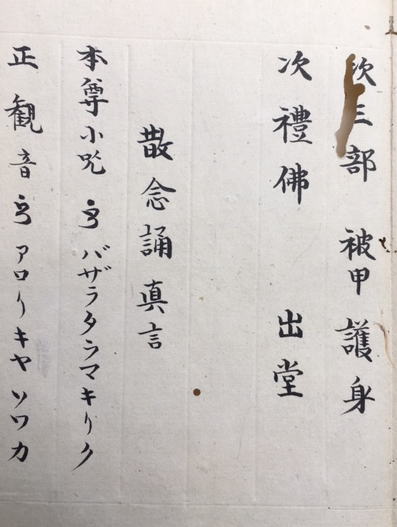 次三部 被甲護身
次禮佛 出堂
散念誦真言
本尊小咒 ॐ バザラタラマキリク
正観音 ॐ アロリキヤソワカ